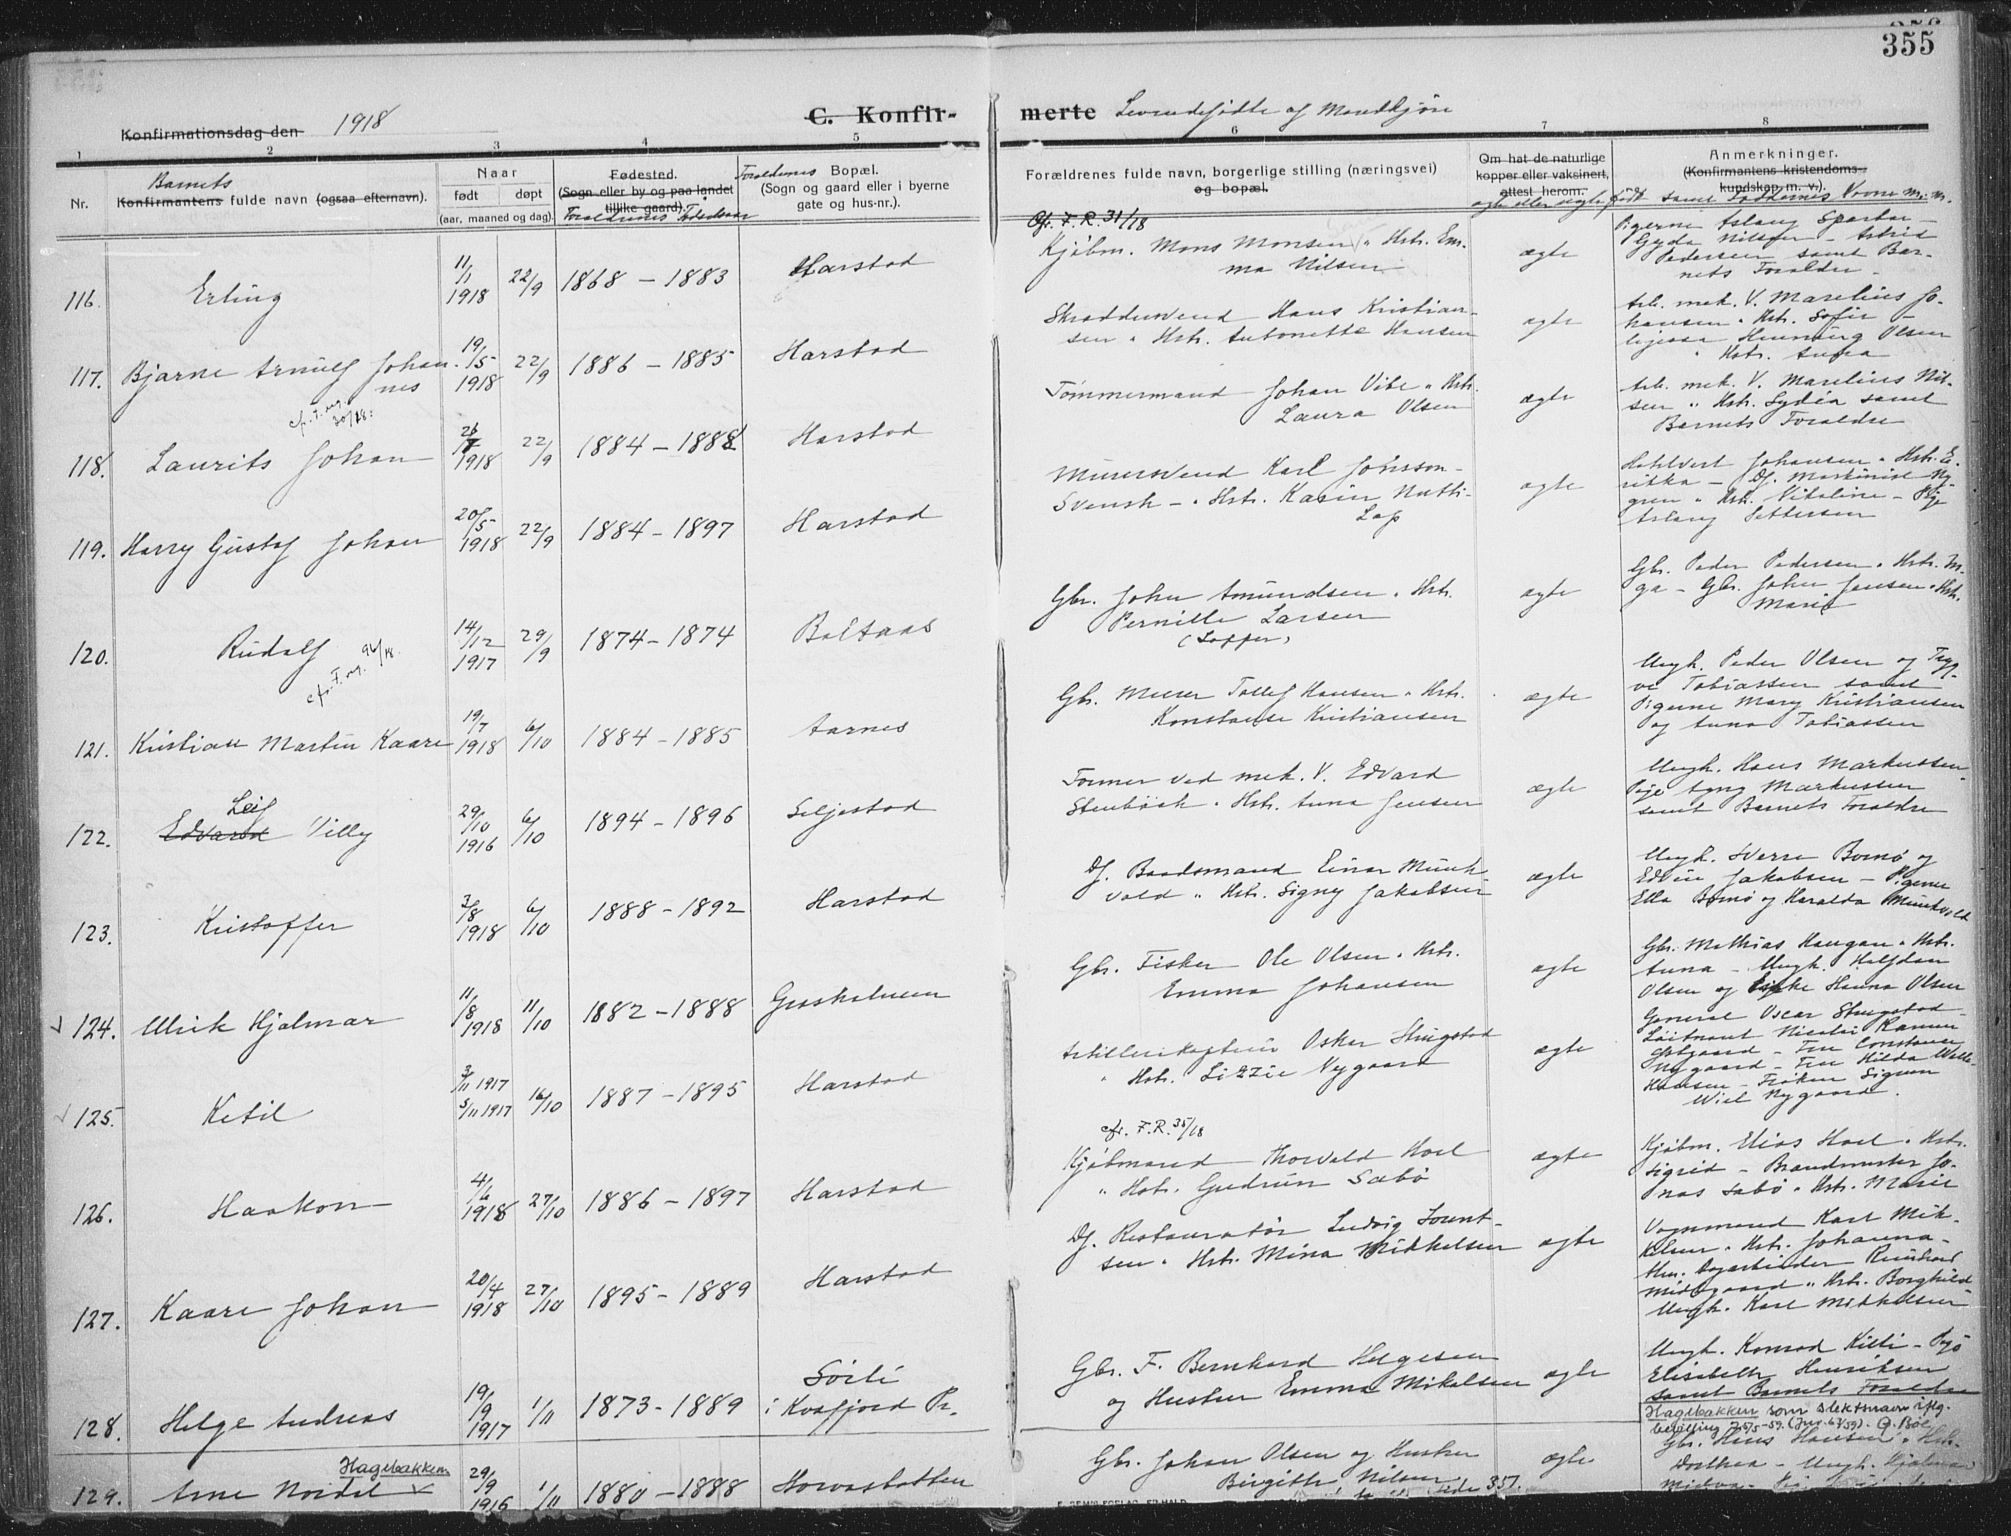 355
1918
C. Konfir-
merte Levendefödte af Mandkjön
Konfirmationsdag den
1 2 3 4 5 6 7 8
Nr.
Barnets
Konfirmantens fulde navn (ogsaa efternavn).
Naar
født døpt
(aar, maaned og dag)
Fødested.
(Sogn eller by og paa landet
tillike gaard).
Foraldrenes Fødselsaar
Foraldrenes Bopæl.
(Sogn og gaard eller i byerne
gate og hus-nr.).
Forældrenes fulde navn, borgerlige stilling (næringsvei)
og bopæl.
Om hat de naturlige
kopper eller vaksinert,
attest herom.
ægte eller uægte født
Anmerkninger.
(Konfirmantens kristendoms-
kundskap, m. v.).
samt Faddernes Navne m. m.
116. Erling 11/1 1918 22/9 1868 – 1883 Harstad
Cfr. F. R. 31/18
Kjöbm. Mons Monsen " Hstr. Em-
ma Nilsen
ægte
Pigerne Aslaug Sparbar –
Gyda Nilsen – Astrid
Pedersen samt Bar-
nets Foraldre –
117. Bjarne Arnulf Johan-
nes 19/5 1918 22/9 1886 – 1885 Harstad
Skraddersvend Hans Kristian-
sen " Hstr. Antonette Hansen
ægte
Arb. mek. V. Marelius Jo-
hansen " Hstr. Sofie –
Henning Olsen
" Hstr. Anna
cfr. F. reg. 30/18:
118. Laurits Johan 1918 22/9 1884 – 1888 Harstad
Tømmermand Johan Vibe " Hstr.
Laura Olsen
ægte
Arb. mek. V. Marelius Nil-
sen " Hstr. Lydia samt
Barnets Foraldre
119. Harry Gustaf Johan 20/5 1918 22/9 1884 – 1897 Harstad
Murersvend Karl Jonsson –
Svensk – " Hstr. Karin Nutti –
Lap
ægte
Johansen " Hstr. E-
rikka – Df. Maskinist Ny-
gren " Hstr. Vitaline – Pige
Aslaug Pettersen
120. Rudolf 14/12 1917 29/9 1874 – 1874 Boltaas
cfr. F. reg. 96/18.
Gbr. John Amundsen " Hstr.
Pernille Larsen
(Lapper)
ægte
Gbr. Peder Pedersen " Hstr. In-
ga – Gbr. John Jensen " Hstr.
Marie
121. Kristian Martin Kaare 19/7 1918 6/10 1884 – 1885 Aarnes
Gbr. Murer Tollef Hansen " Hstr.
Konstanse Kristiansen
ægte
Ungk. Peder Olsen og Tryg-
ve Tobiassen samt
Pigerne Mary Kristiansen
og Anna Tobiassen
122. Leif
Edvard Villy 29/10 1916 6/10 1894 – 1896 Seljestad
Former ved mek. V. Edvard
Stenbåck " Hstr. Anna Jensen
ægte
Ungk. Hans Markussen
Pige Agny Markussen
samt Barnets Foraldre
123. Kristoffer 3/8 1918 6/10 1888 – 1892 Harstad
Df. Baadsmand Einar Munk-
vold " Hstr. Signy Jakobsen
ægte
Ungk. Sverre Bornø og
Edvin Jakobsen – Pigerne
Ella Bornø og Haralda Munkvold
124. Ulrik Hjalmar 11/8 1918 11/10 1882 – 1888 Grasholmen
Gbr. Fisker Ole Olsen " Hstr.
Emma Johansen
ægte
Gbr. Mathias Haugan " Hstr.
Anna – Ungk. Halfdan
Olsen og Hanna Olsen
125. Ketil 3/11 1917 5/11 1917 16/10 1887 – 1895 Harstad
Artillerikaptein Oskar Strugstad
" Hstr. Lizzie Nygaard
ægte
General Oscar Strugstad –
Löitnant Nicolai Ramm
Østgaard – Fru Constance
Nygaard – Fru Hilda
Hansen – Frøken Sigrun
Wiel Nygaard.
126. Haakon 4/6 1918 27/10 1886 – 1897 Harstad
cfr. F. R. 35/18
Kjöbmand Thorvald Hoel
" Hstr. Gudrun Sabö
ægte
Kjöbm. Elias Hoel " Hstr.
Sigrid – Brandmester Jo-
nas Sabö " Hstr. Marie
127. Kaare Johan 20/4 1918 27/10 1895 – 1889 Harstad
Df. Restauratör Ludvig Lorent-
sen " Hstr. Mina Mikkelsen
ægte
Vognmand Karl Mik-
kelsen " Hstr. Johanna –
Midtgaard " Hstr. Borghild
Ungk. Karl Mikkelsen
128. Helge Andreas 19/9 1917 1/11 1873 – 1889 Sörli
i Kvæfjord Pr.
Gbr. F. Bernhard Helgesen
og Hustru Emma Mikalsen
ægte
Ungk. Konrad Kilti – Pige
Elisabeth Henriksen
samt Barnets Foraldre
Hagebakken som slektsnavn iflg.
bevilling 25/5-59. (Jnr. 67/59). G. Böe
129. Arne Nordal Hagebakken 29/9 1916 1/11 1880 – 1888 Horvastatten
Gbr. Johan Olsen og Hustru
Birgitte Nilsen
Side 351.
ægte
Gbr. Hans Hansen " Hstr.
Dorthea – Ungk. Hjalmar